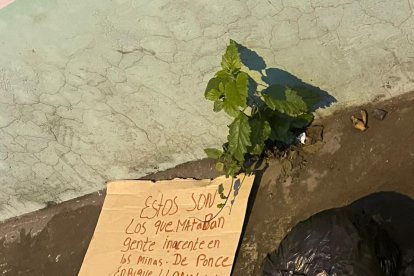 ESTOS SON
LOS QUE MATABAN
gente inocente en
las minas. De Ponce
ENRIQUE